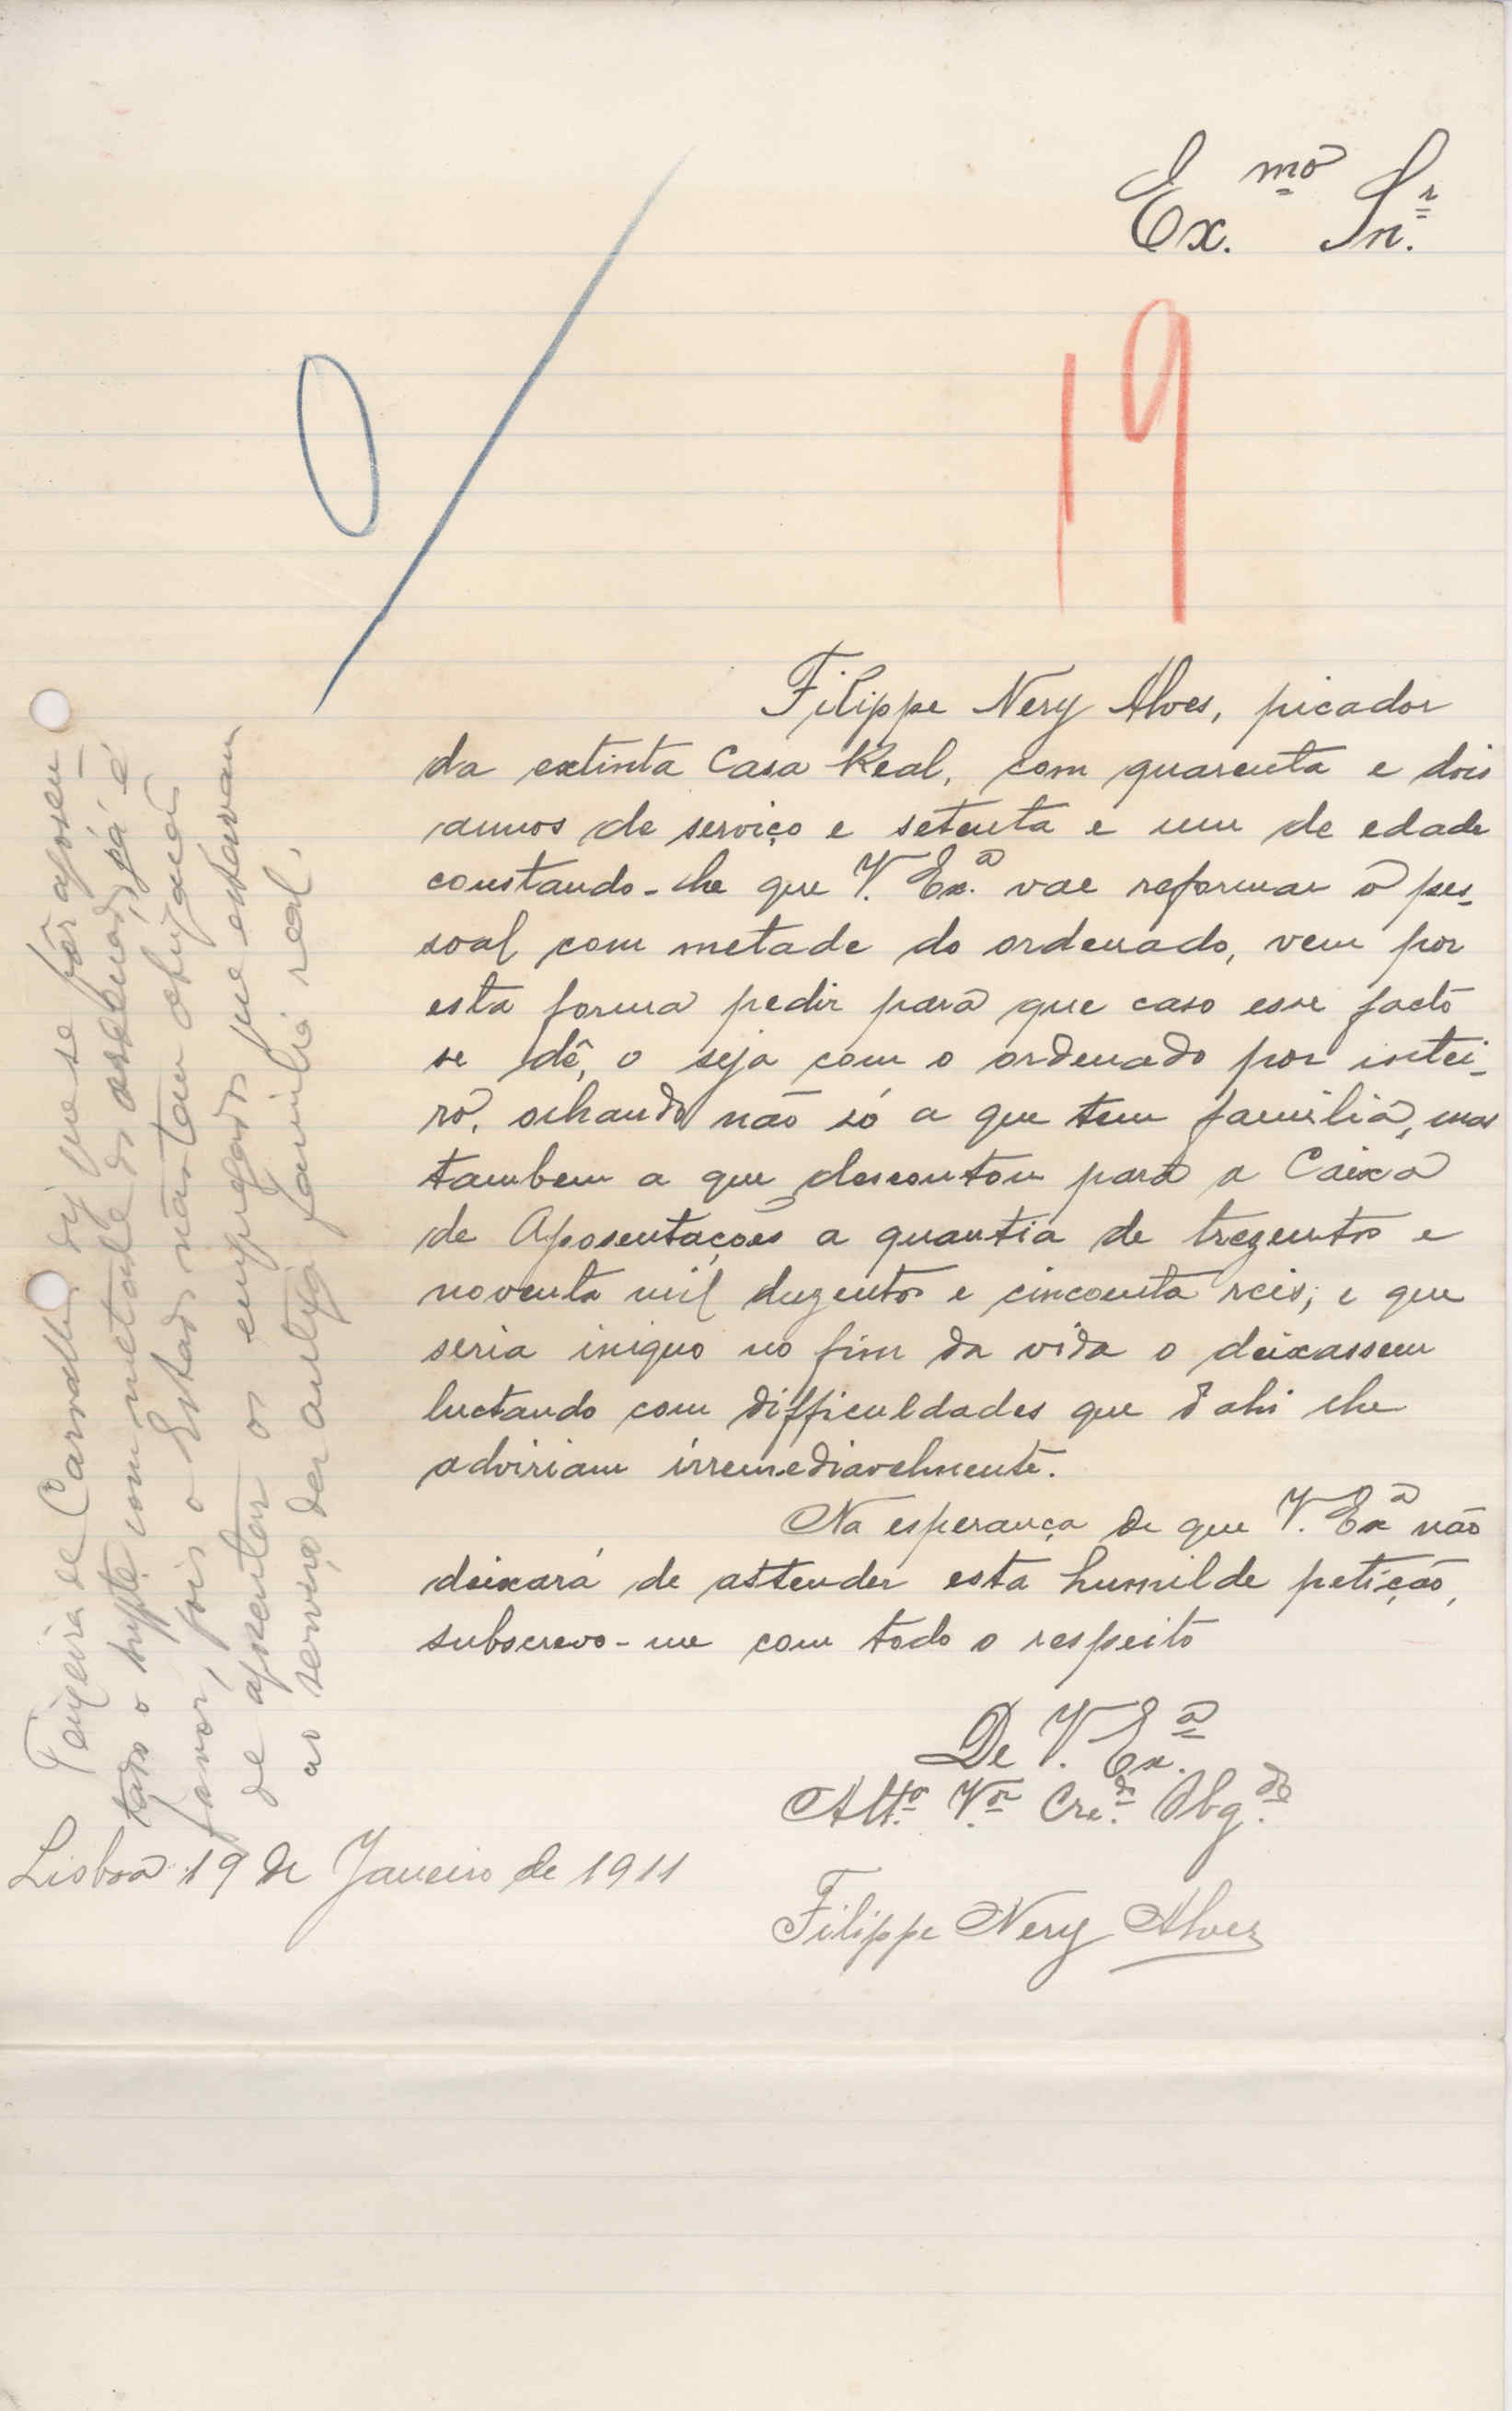 Ex.mo Snr.
19
Filippe Nery Alves, picador
da extinta Casa Real, com quarenta e dois
annos de serviço e setenta e um de edade
constando-lhe que V. Ex.ª vae reformar o pes-
soal com metade do ordenado, vem por
esta forma pedir para que caso esse facto
se dê, o seja com o ordenado por intei-
ro, olhando não só a que tem familia, mas
tambem a que descontou para a Caixa
de Aposentações a quantia de trezentos e
noventa mil duzentos e cincoenta reis, e que
seria iniquo no fim da vida o deixassem
luctando com difficuldades que d'ahi lhe
adviriam irremediavelmente.
Na esperança de que V. Exª não
deixará de attender esta humilde petição,
subscrevo-me com todo o respeito
De V. Ex.ª
Att.º V.or Cre.do Obg.do
Lisboa 19 de Janeiro de 1911
Filippe Nery Alves
Teixeira de Carvalho diz que se fôr aposen-
tado o suppte com metade do ordenado, já é
favor, pois o Estado não tem obrigação
de aposentar os empregados que estavam
ao serviço da antiga familia real.